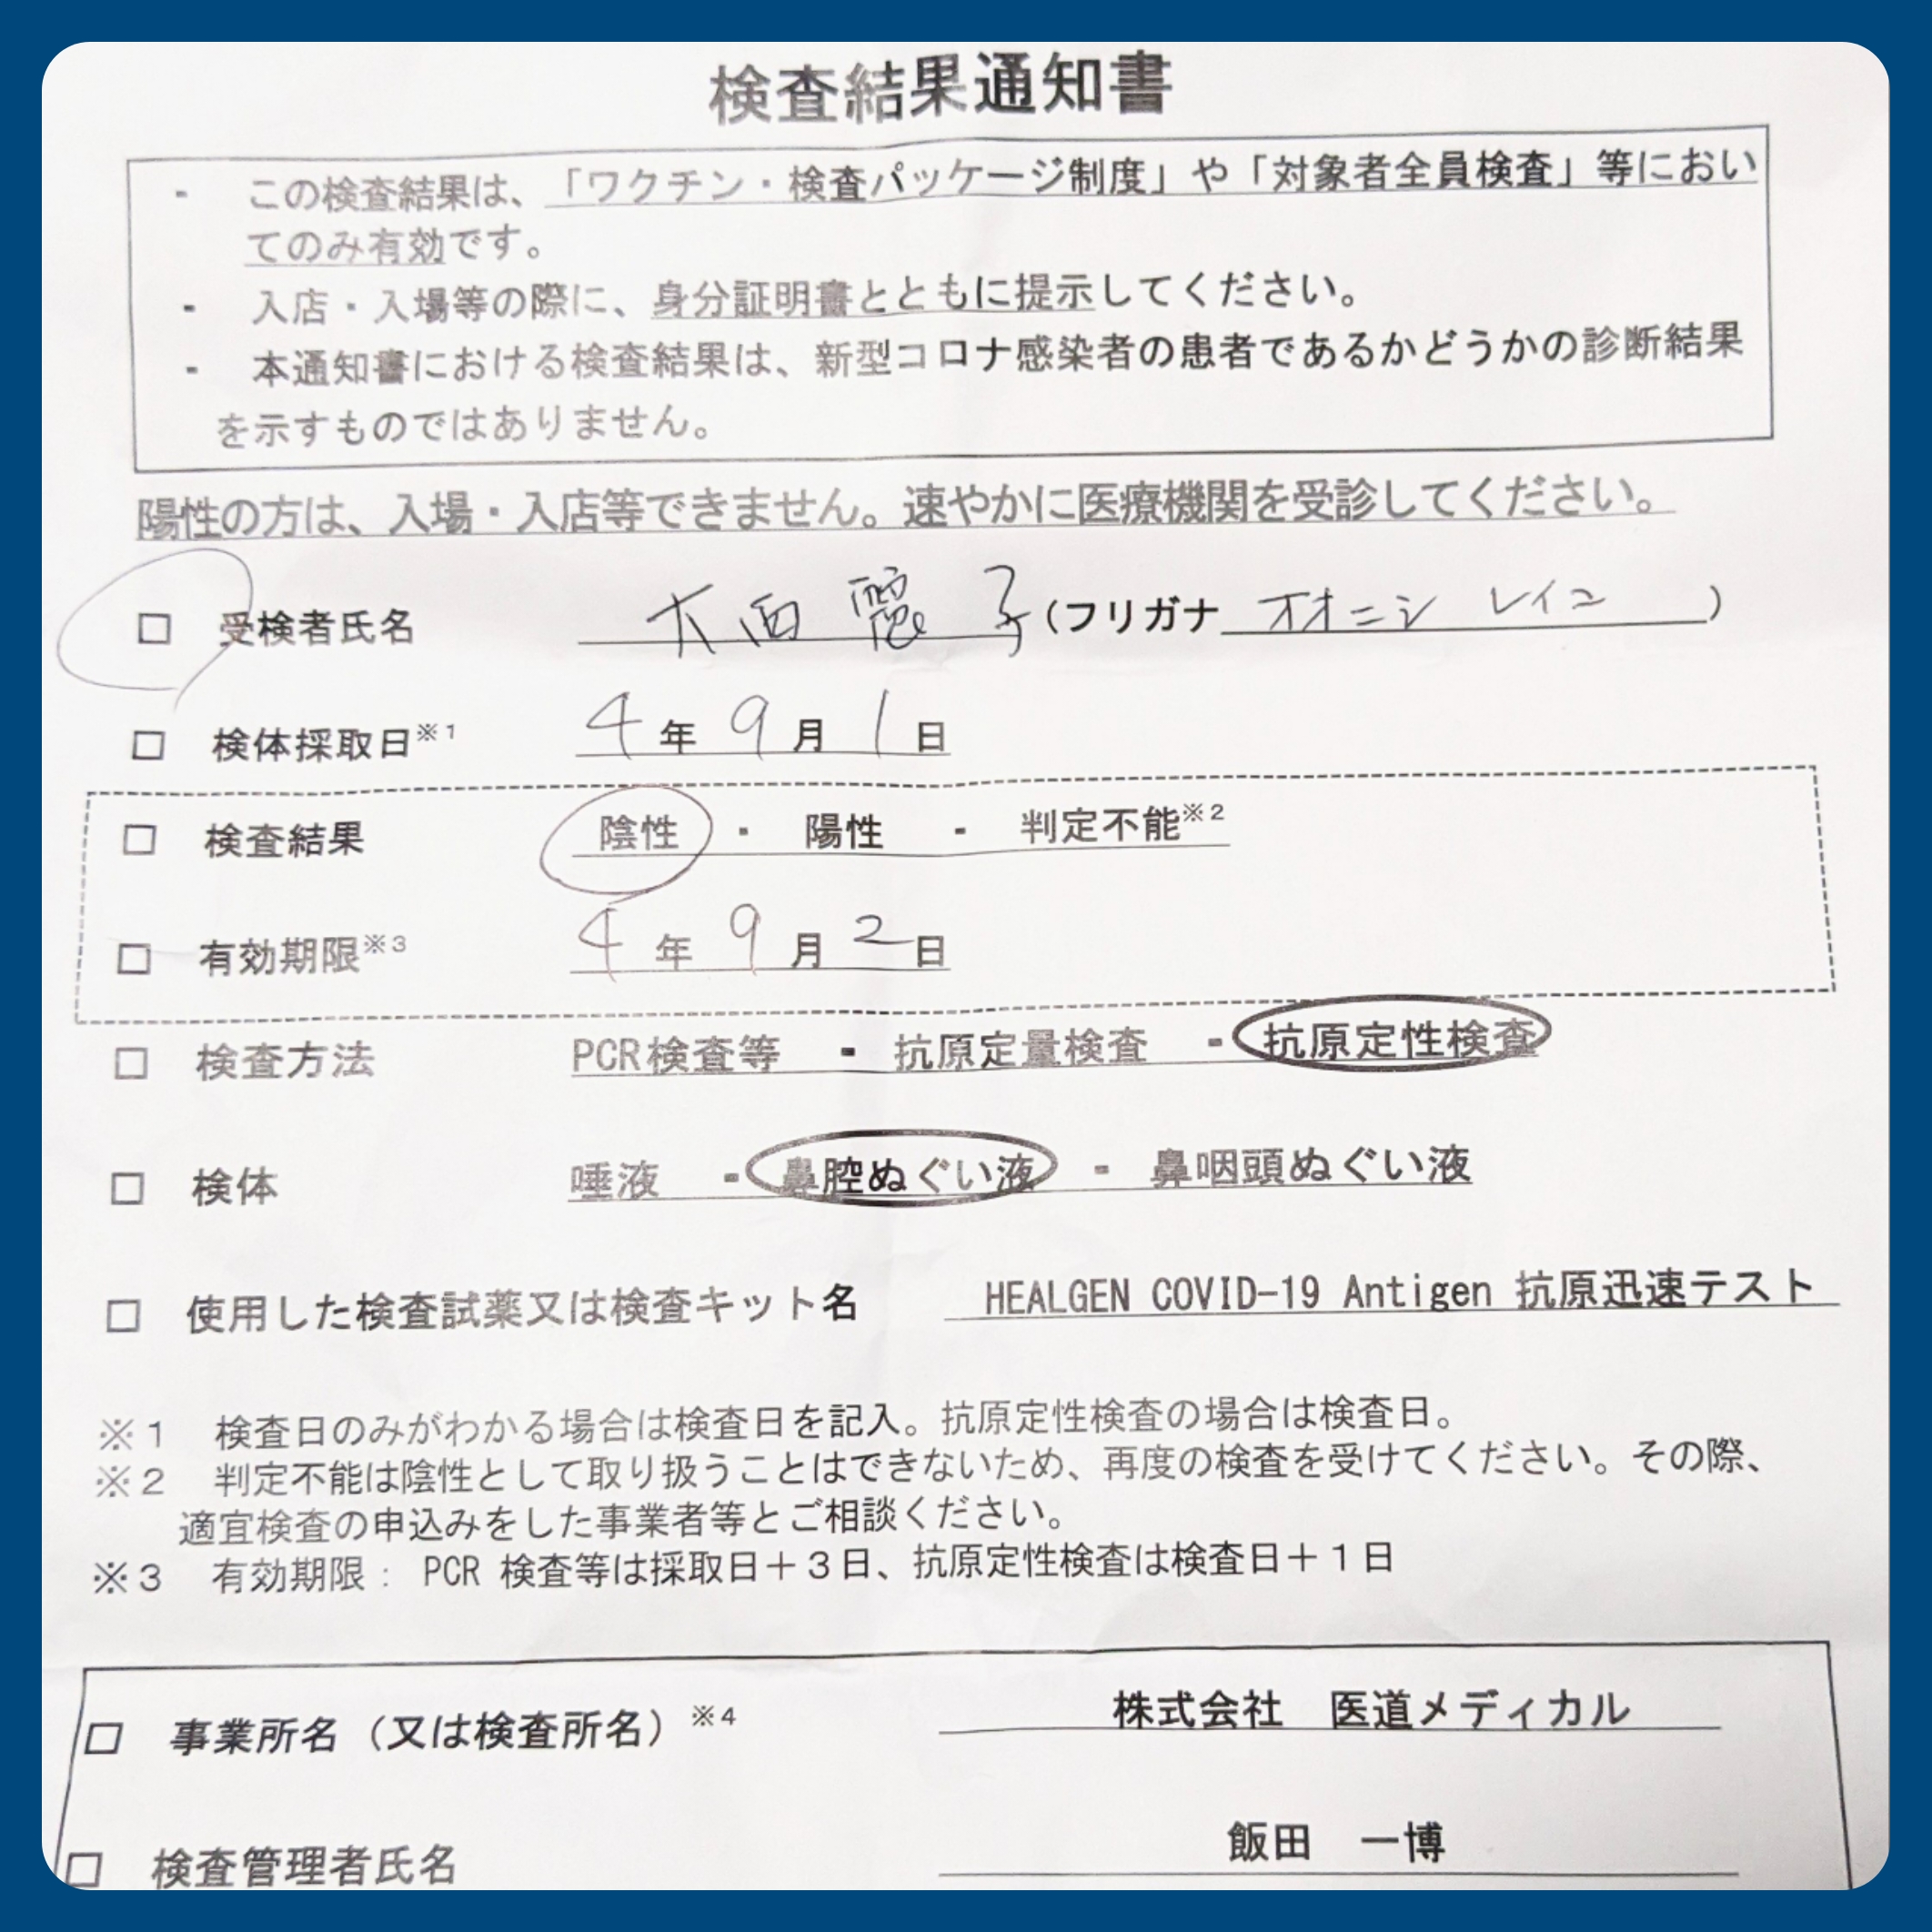 検査結果通知書
- この検査結果は、「ワクチン・検査パッケージ制度」や「対象者全員検査」等におい
てのみ有効です。
- 入店・入場等の際に、身分証明書とともに提示してください。
- 本通知書における検査結果は、新型コロナ感染者の患者であるかどうかの診断結果
を示すものではありません。
陽性の方は、入場・入店等できません。速やかに医療機関を受診してください。
□ 受検者氏名 大西 麗子(フリガナ オオニシ レイコ )
□ 検体採取日※1 4年 9月 1日
□ 検査結果 陰性 ・ 陽性 ・ 判定不能※2
□ 有効期限※3 4年 9月 2日
□ 検査方法 PCR検査等 ・ 抗原定量検査 ・ 抗原定性検査
□ 検体 唾液 ・ 鼻腔ぬぐい液 ・ 鼻咽頭ぬぐい液
□ 使用した検査試薬又は検査キット名 HEALGEN COVID-19 Antigen 抗原迅速テスト
※1 検査日のみがわかる場合は検査日を記入。抗原定性検査の場合は検査日。
※2 判定不能は陰性として取り扱うことはできないため、再度の検査を受けてください。その際、
適宜検査の申込みをした事業者等とご相談ください。
※3 有効期限: PCR 検査等は採取日+3日、抗原定性検査は検査日+1日
□ 事業所名（又は検査所名）※4 株式会社 医道メディカル
□ 検査管理者氏名 飯田 一博